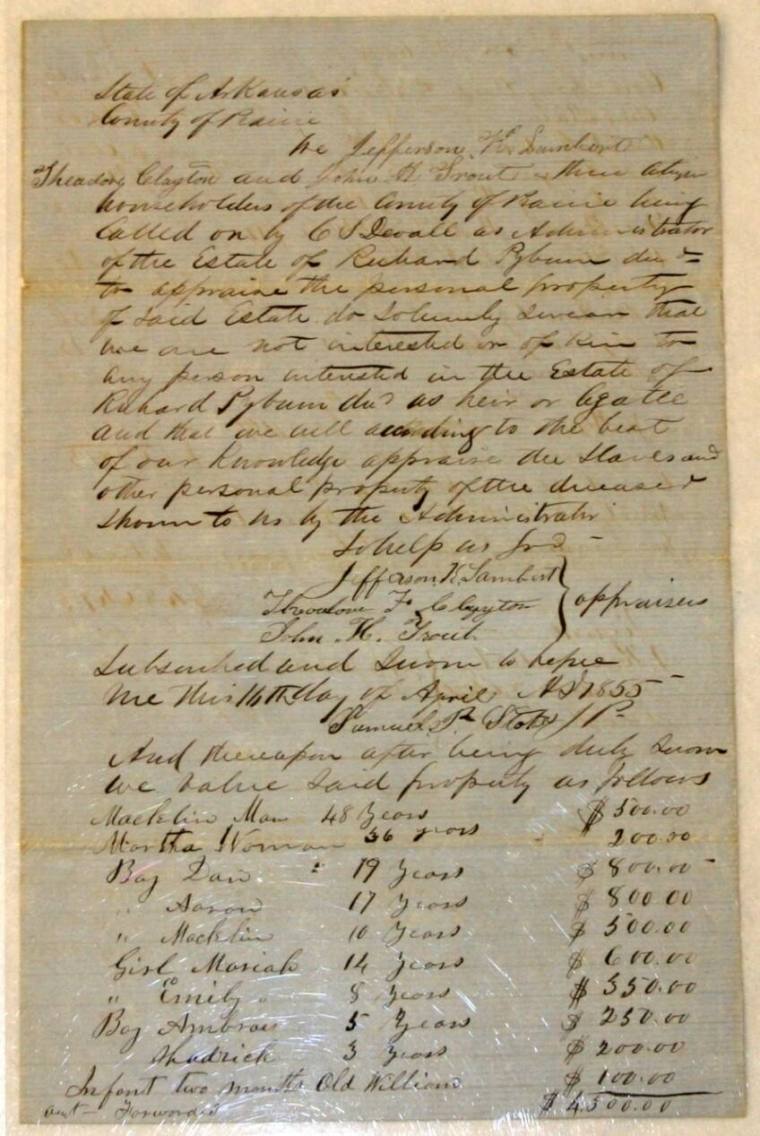 State of Arkansas
County of Prairie
We Jefferson K. Lambert
Theadore Clayton and John H Trout three
householders of the County of Prairie being
Called on by C S Devall as Administrator
of the Estate of Richard Pyburn decd
to appraise the personal property
of said Estate do Solemnly Swear that
we are not interested or of Kin to
any person interested in the Estate of
Richard Pyburn decd as heir or legatee
and that we will according to the best
of our Knowledge appraise the Slaves and
other personal property of the deceased
shown to us by the Administrator
So help us God
Jefferson K Lambert
Theodore F. Clayton } appraisers
John H. Trout
Subscribed and Sworn to before
me this 14th day of April AD 1855
Samuel P. JP
And thereupon after being duly Sworn
we value said property as follows
Macklin Man 48 Years $ 500.00
Martha Woman 36 years 200.00
Boy Dan " 19 Years $ 800.00
" Aaron 17 Years $ 800.00
" Macklin 10 Years $ 500.00
Girl Mariah 14 Years $ 600.00
" Emily 8 Years $ 550.00
Boy Ambrous 5 Years $ 250.00
Shadrick 3 Years $ 200.00
Infant two months Old William $ 100.00
amt Forwarded $ 4.500.00